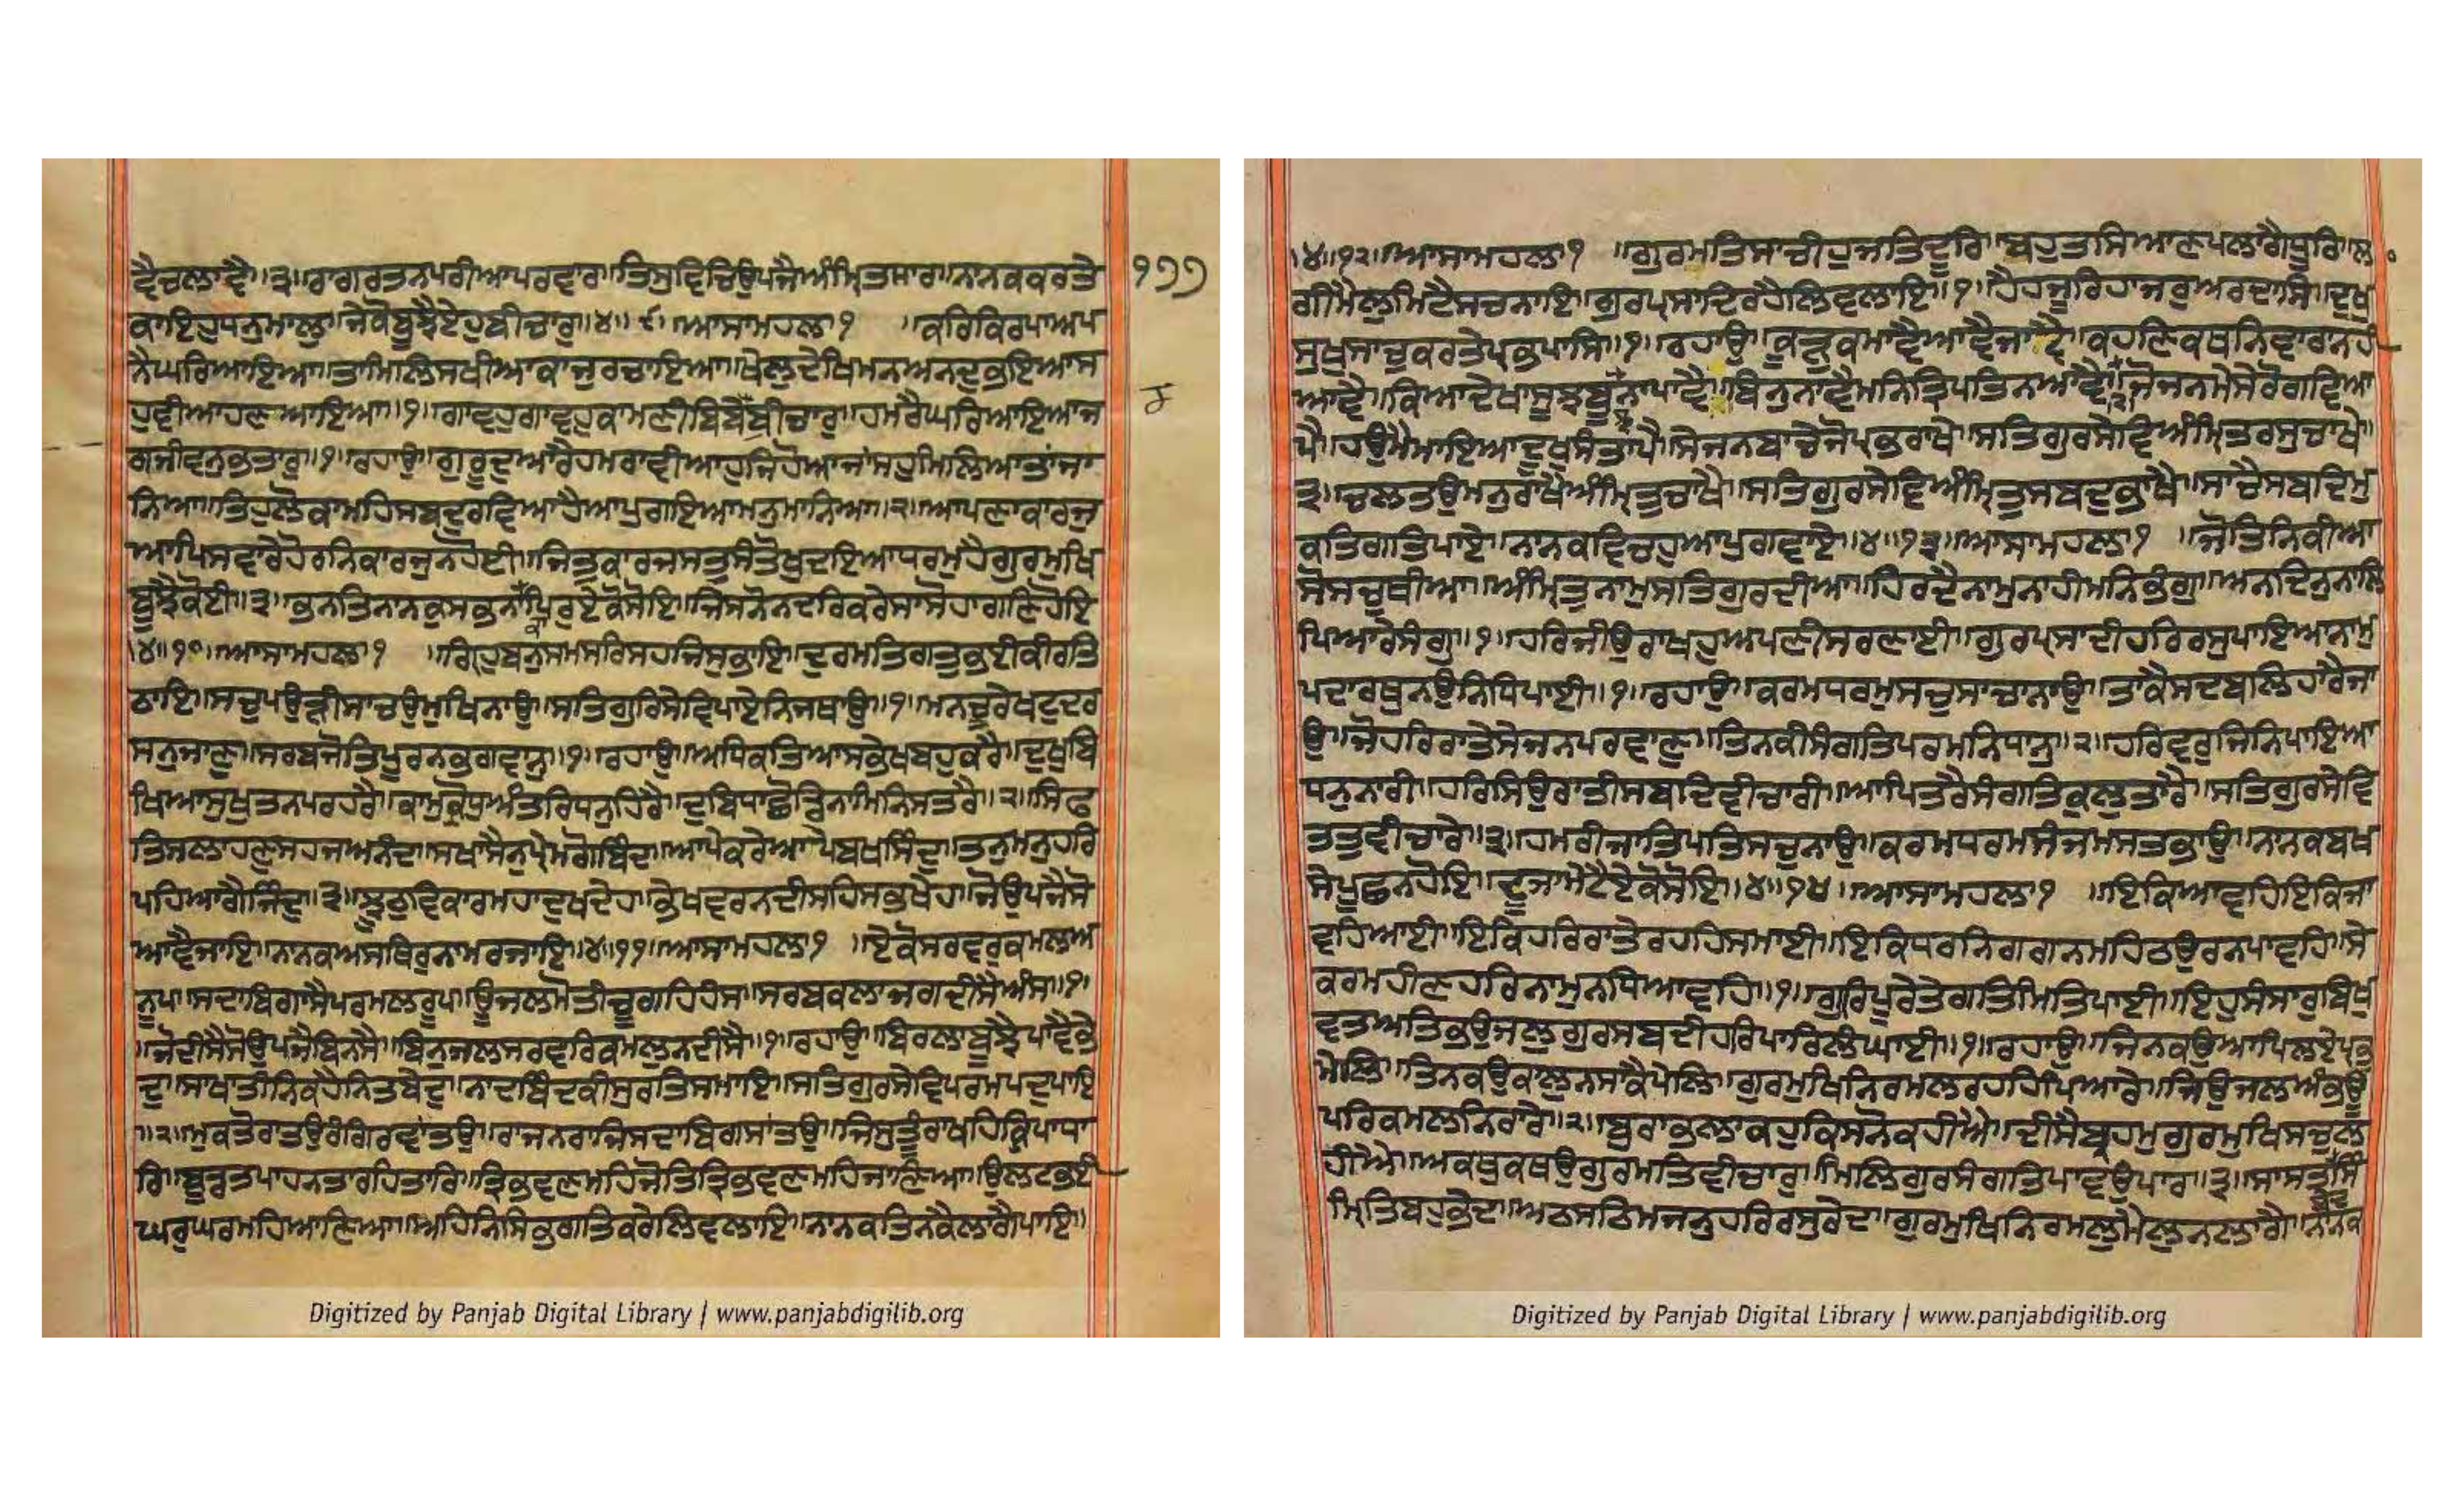 ਵੈਚਲਾਵੈ॥੩॥ਰਾਗਰਤਨਪਰੀਆਪਰਵਾਰਾ॥ਤਿਸੁਵਿਚਿਉਪਜੈਅੰਮ੍ਰਿਤਸਾਰਾ॥ਨਾਨਕਕਰਤੇ
੧੭੭
ਕਾਇਹੁਧਨੁਮਾਲੁ॥ਜੇਕੋਬੂਝੈਏਹੁਬੀਚਾਰੁ॥੪॥੯॥ਆਸਾਮਹਲਾ੧ ॥ਕਰਿਕਿਰਪਾਅਪ
ਨੈਘਰਿਆਇਆ॥ਤਾਮਿਲਿਸਖੀਆਕਾਜੁਰਚਾਇਆ॥ਖੇਲੁਦੇਖਿਮਨਅਨਦੁਭਇਆਸ
ਹੁਵੀਆਹਣਆਇਆ॥੧॥ਗਾਵਹੁਗਾਵਹੁਕਾਮਣੀਬਿਬੇਬੀਚਾਰੁ॥ਹਮਰੈਘਰਿਆਇਆਜ
ਗਜੀਵਨੁਭਤਾਰੁ॥੧॥ਰਹਾਉ॥ਗੁਰੂਦੁਆਰੈਹਮਰਾਵੀਆਹੁਜਿਹੋਆਜਾਂਸਹੁਮਿਲਿਆਤਾਂਜਾ
ਨਿਆ॥ਤਿਹੁਲੋਕਾਮਹਿਸਬਦੁਰਵਿਆਹੈਆਪੁਗਇਆਮਨੁਮਾਨਿਆ॥੨॥ਆਪਣਾਕਾਰਜੁ
ਆਪਿਸਵਾਰੇਹੋਰਨਿਕਾਰਜੁਨਹੋਈ॥ਜਿਤੁਕਾਰਜਸਤੁਸੰਤੋਖੁਦਇਆਧਰਮੁਹੈਗੁਰਮੁਖਿ
ਬੂਝੈਕੋਈ॥੩॥ਭਨਤਿਨਾਨਕੁਸਭਨਾਪਿਰੁਏਕੋਸੋਇ॥ਜਿਸਨੋਨਦਰਿਕਰੇਸਾਸੋਹਾਗਣਿਹੋਇ
॥੪॥੧੦॥ਆਸਾਮਹਲਾ੧ ॥ਗ੍ਰਿਹੁਬਨੁਸਮਸਰਿਸਹਜਿਸੁਭਾਇ॥ਦੁਰਮਤਿਗਤੁਭਈਕੀਰਤਿ
ਠਾਇ॥ਸਚੁਪਉੜੀਸਾਚਉਮੁਖਿਨਾਉ॥ਸਤਿਗੁਰਿਸੇਵਿਪਾਏਨਿਜਥਾਉ॥੧॥ਮਨਚੂਰੇਖਟੁਦਰ
ਸਨੁਜਾਣੁ॥ਸਰਬਜੋਤਿਪੂਰਨਭਗਵਾਨੁ॥੧॥ਰਹਾਉ॥ਅਧਿਕਤਿਆਸਭੇਖਬਹੁਕਰੈ॥ਦੁਖੁਬਿ
ਖਿਆਸੁਖੁਤਨਪਰਹਰੈ॥ਕਾਮੁਕ੍ਰੋਧੁਅੰਤਰਿਧਨੁਹਿਰੈ॥ਦੁਬਿਧਾਛੋਡਿਨਾਮਿਨਿਸਤਰੈ॥੨॥ਸਿਫ
ਤਿਸਲਾਹਣੁਸਹਜਅਨੰਦਾ॥ਸਖਾਸੈਨੁਪ੍ਰੇਮਗੋਬਿੰਦਾ॥ਆਪੇਕਰੇਆਪੇਬਖਸਿੰਦਾ॥ਤਨੁਮਨੁਹਰਿ
ਪਹਿਆਗੈਜਿੰਦਾ॥੩॥ਝੂਠੁਵਿਕਾਰਮਹਾਦੁਖਦੇਹਾ॥ਭੇਖਵਰਨਦੀਸਹਿਸਭਖੇਹਾ॥ਜੋਉਪਜੈਸੋ
ਆਵੈਜਾਇ॥ਨਾਨਕਅਸਥਿਰੁਨਾਮਰਜਾਇ॥੪॥੧੧॥ਆਸਾਮਹਲਾ੧ ॥ਏਕੋਸਰਵਰੁਕਮਲਅ
ਨੂਪ॥ਸਦਾਬਿਗਾਸੈਪਰਮਲਰੂਪ॥ਊਜਲਮੋਤੀਚੂਗਹਿਹੰਸ॥ਸਰਬਕਲਾਜਗਦੀਸੈਅੰਸ॥੧॥
॥ਜੋਦੀਸੈਸੋਉਪਜੈਬਿਨਸੈ॥ਬਿਨੁਜਲਸਰਵਰਿਕਮਲੁਨਦੀਸੈ॥੧॥ਰਹਾਉ॥ਬਿਰਲਾਬੂਝੈਪਾਵੈਭੇ
ਦੁ॥ਸਾਖਾਤੀਨਿਕਹੈਨਿਤਬੇਦੁ॥ਨਾਦਬਿੰਦਕੀਸੁਰਤਿਸਮਾਇ॥ਸਤਿਗੁਰਸੇਵਿਪਰਮਪਦੁਪਾਇ
॥੨॥ਮੁਕਤੋਰਾਤਉਰੰਗਿਰਵਾਂਤਉ॥ਰਾਜਨਰਾਜਿਸਦਾਬਿਗਸਾਂਤਉ॥ਜਿਸੁਤੂੰਰਾਖਹਿਕਿਰਪਾਧਾ
ਰਿ॥ਬੂਡਤਪਾਹਨਤਾਰਹਿਤਾਰਿ॥ਤ੍ਰਿਭਵਣਮਹਿਜੋਤਿਤ੍ਰਿਭਵਣਮਹਿਜਾਣਿਆ॥ਉਲਟਭਈ
ਘਰੁਘਰਮਹਿਆਣਿਆ॥ਅਹਿਨਿਸਿਭਗਤਿਕਰੇਲਿਵਲਾਇ॥ਨਾਨਕਤਿਨਕੈਲਾਗੈਪਾਇ॥
Digitized by Panjab Digital Library | www.panjabdigilib.org
॥੪॥੧੨॥ਆਸਾਮਹਲਾ੧ ॥ਗੁਰਮਤਿਸਾਚੀਹੁਜਤਿਦੂਰਿ॥ਬਹੁਤਸਿਆਣਪਲਾਗੈਧੂਰਿ॥ਲਾ
ਗੀਮੈਲੁਮਿਟੈਸਚਨਾਇ॥ਗੁਰਪ੍ਰਸਾਦਿਰਹੈਲਿਵਲਾਇ॥੧॥ਹੈਹਜੂਰਿਹਾਜਰੁਅਰਦਾਸਿ॥ਦੁਖੁ
ਸੁਖੁਸਾਚੁਕਰਤੇਪ੍ਰਭਪਾਸਿ॥੧॥ਰਹਾਉ॥ਕੂੜੁਕਮਾਵੈਆਵੈਜਾਵੈ॥ਕਹਣਿਕਥਨਿਵਾਰਨਹੀ
ਆਵੈ॥ਕਿਆਦੇਖਾਸੂਝਬੂਝਨਪਾਵੈ॥ਬਿਨੁਨਾਵੈਮਨਿਤ੍ਰਿਪਤਿਨਆਵੈ॥੨॥ਜੋਜਨਮੇਸੇਰੋਗਿਵਿਆ
ਪੈ॥ਹਉਮੈਮਾਇਆਦੂਖੁਸੰਤਾਪੈ॥ਸੇਜਨਬਾਚੇਜੋਪ੍ਰਭਰਾਖੇ॥ਸਤਿਗੁਰਸੇਵਿਅੰਮ੍ਰਿਤਰਸੁਚਾਖੇ॥
੩॥ਚਲਤਉਮਨੁਰਾਖੈਅੰਮ੍ਰਿਤੁਚਾਖੈ॥ਸਤਿਗੁਰਸੇਵਿਅੰਮ੍ਰਿਤੁਸਬਦੁਭਾਖੈ॥ਸਾਚੈਸਬਦਿਮੁ
ਕਤਿਗਤਿਪਾਏ॥ਨਾਨਕਵਿਚਹੁਆਪੁਗਵਾਏ॥੪॥੧੩॥ਆਸਾਮਹਲਾ੧ ॥ਜੋਤਿਨਿਕੀਆ
ਸੋਸਚੁਥੀਆ॥ਅੰਮ੍ਰਿਤੁਨਾਮੁਸਤਿਗੁਰਦੀਆ॥ਹਿਰਦੈਨਾਮੁਨਾਹੀਮਨਿਭੰਗੁ॥ਅਨਦਿਨੁਨਾਲਿ
ਪਿਆਰੇਸੰਗੁ॥੧॥ਹਰਿਜੀਉਰਾਖਹੁਅਪਣੀਸਰਣਾਈ॥ਗੁਰਪ੍ਰਸਾਦੀਹਰਿਰਸੁਪਾਇਆਨਾਮੁ
ਪਦਾਰਥੁਨਉਨਿਧਿਪਾਈ॥੧॥ਰਹਾਉ॥ਕਰਮਧਰਮੁਸਚੁਸਾਚਾਨਾਉ॥ਤਾਕੈਸਦਬਲਿਹਾਰੈਜਾ
ਉ॥ਜੋਹਰਿਰਾਤੇਸੇਜਨਪਰਵਾਣੁ॥ਤਿਨਕੀਸੰਗਤਿਪਰਮਨਿਧਾਨੁ॥੨॥ਹਰਿਵਰੁਜਿਨਿਪਾਇਆ
ਧਨੁਨਾਰੀ॥ਹਰਿਸਿਉਰਾਤੀਸਬਦਿਵੀਚਾਰੀ॥ਆਪਿਤਰੈਸੰਗਤਿਕੁਲੁਤਾਰੈ॥ਸਤਿਗੁਰਸੇਵਿ
ਤਤੁਵੀਚਾਰੇ॥੩॥ਹਮਰੀਜਾਤਿਪਤਿਸਚੁਨਾਉ॥ਕਰਮਧਰਮਸੰਜਮਸਤਭਾਉ॥ਨਾਨਕਬਖ
ਸੇਪੂਛਨਹੋਇ॥ਦੂਜਾਮੇਟੈਏਕੋਸੋਇ॥੪॥੧੪॥ਆਸਾਮਹਲਾ੧ ॥ਇਕਿਆਵਹਿਇਕਿਜਾ
ਵਹਿਆਈ॥ਇਕਿਹਰਿਰਾਤੇਰਹਹਿਸਮਾਈ॥ਇਕਿਧਰਨਿਗਗਨਮਹਿਠਉਰਨਪਾਵਹਿ॥ਸੇ
ਕਰਮਹੀਣਹਰਿਨਾਮੁਨਧਿਆਵਹਿ॥੧॥ਗੁਰਿਪੂਰੇਤੇਗਤਿਮਿਤਿਪਾਈ॥ਇਹੁਸੰਸਾਰੁਬਿਖੁ
ਵਤਅਤਿਭਉਜਲੁਗੁਰਸਬਦੀਹਰਿਪਾਰਿਲੰਘਾਈ॥੧॥ਰਹਾਉ॥ਜਿਨਕਉਆਪਿਲਏਪ੍ਰਭੁ
ਮੇਲਿ॥ਤਿਨਕਉਕਾਲੁਨਸਾਕੈਪੇਲਿ॥ਗੁਰਮੁਖਿਨਿਰਮਲਰਹਹਿਪਿਆਰੇ॥ਜਿਉਜਲਅੰਭਊ
ਪਰਿਕਮਲਨਿਰਾਰੇ॥੨॥ਬੁਰਾਭਲਾਕਹੁਕਿਸਨੋਕਹੀਐ॥ਦੀਸੈਬ੍ਰਹਮੁਗੁਰਮੁਖਿਸਚੁਲ
ਹੀਐ॥ਅਕਥੁਕਥਉਗੁਰਮਤਿਵੀਚਾਰੁ॥ਮਿਲਿਗੁਰਸੰਗਤਿਪਾਵਉਪਾਰੁ॥੩॥ਸਾਸਤਸਿੰ
ਮ੍ਰਿਤਿਬਹੁਭੇਦ॥ਅਠਸਠਿਮਜਨੁਹਰਿਰਸੁਰੇਦ॥ਗੁਰਮੁਖਿਨਿਰਮਲੁਮੈਲੁਨਲਾਗੈ॥ਨਾਨਕ
Digitized by Panjab Digital Library | www.panjabdigilib.org